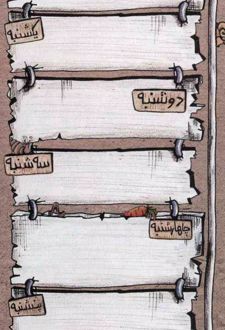 یکشنبه
دوشنبه
سه شنبه
چهارشنبه
پنجشنبه